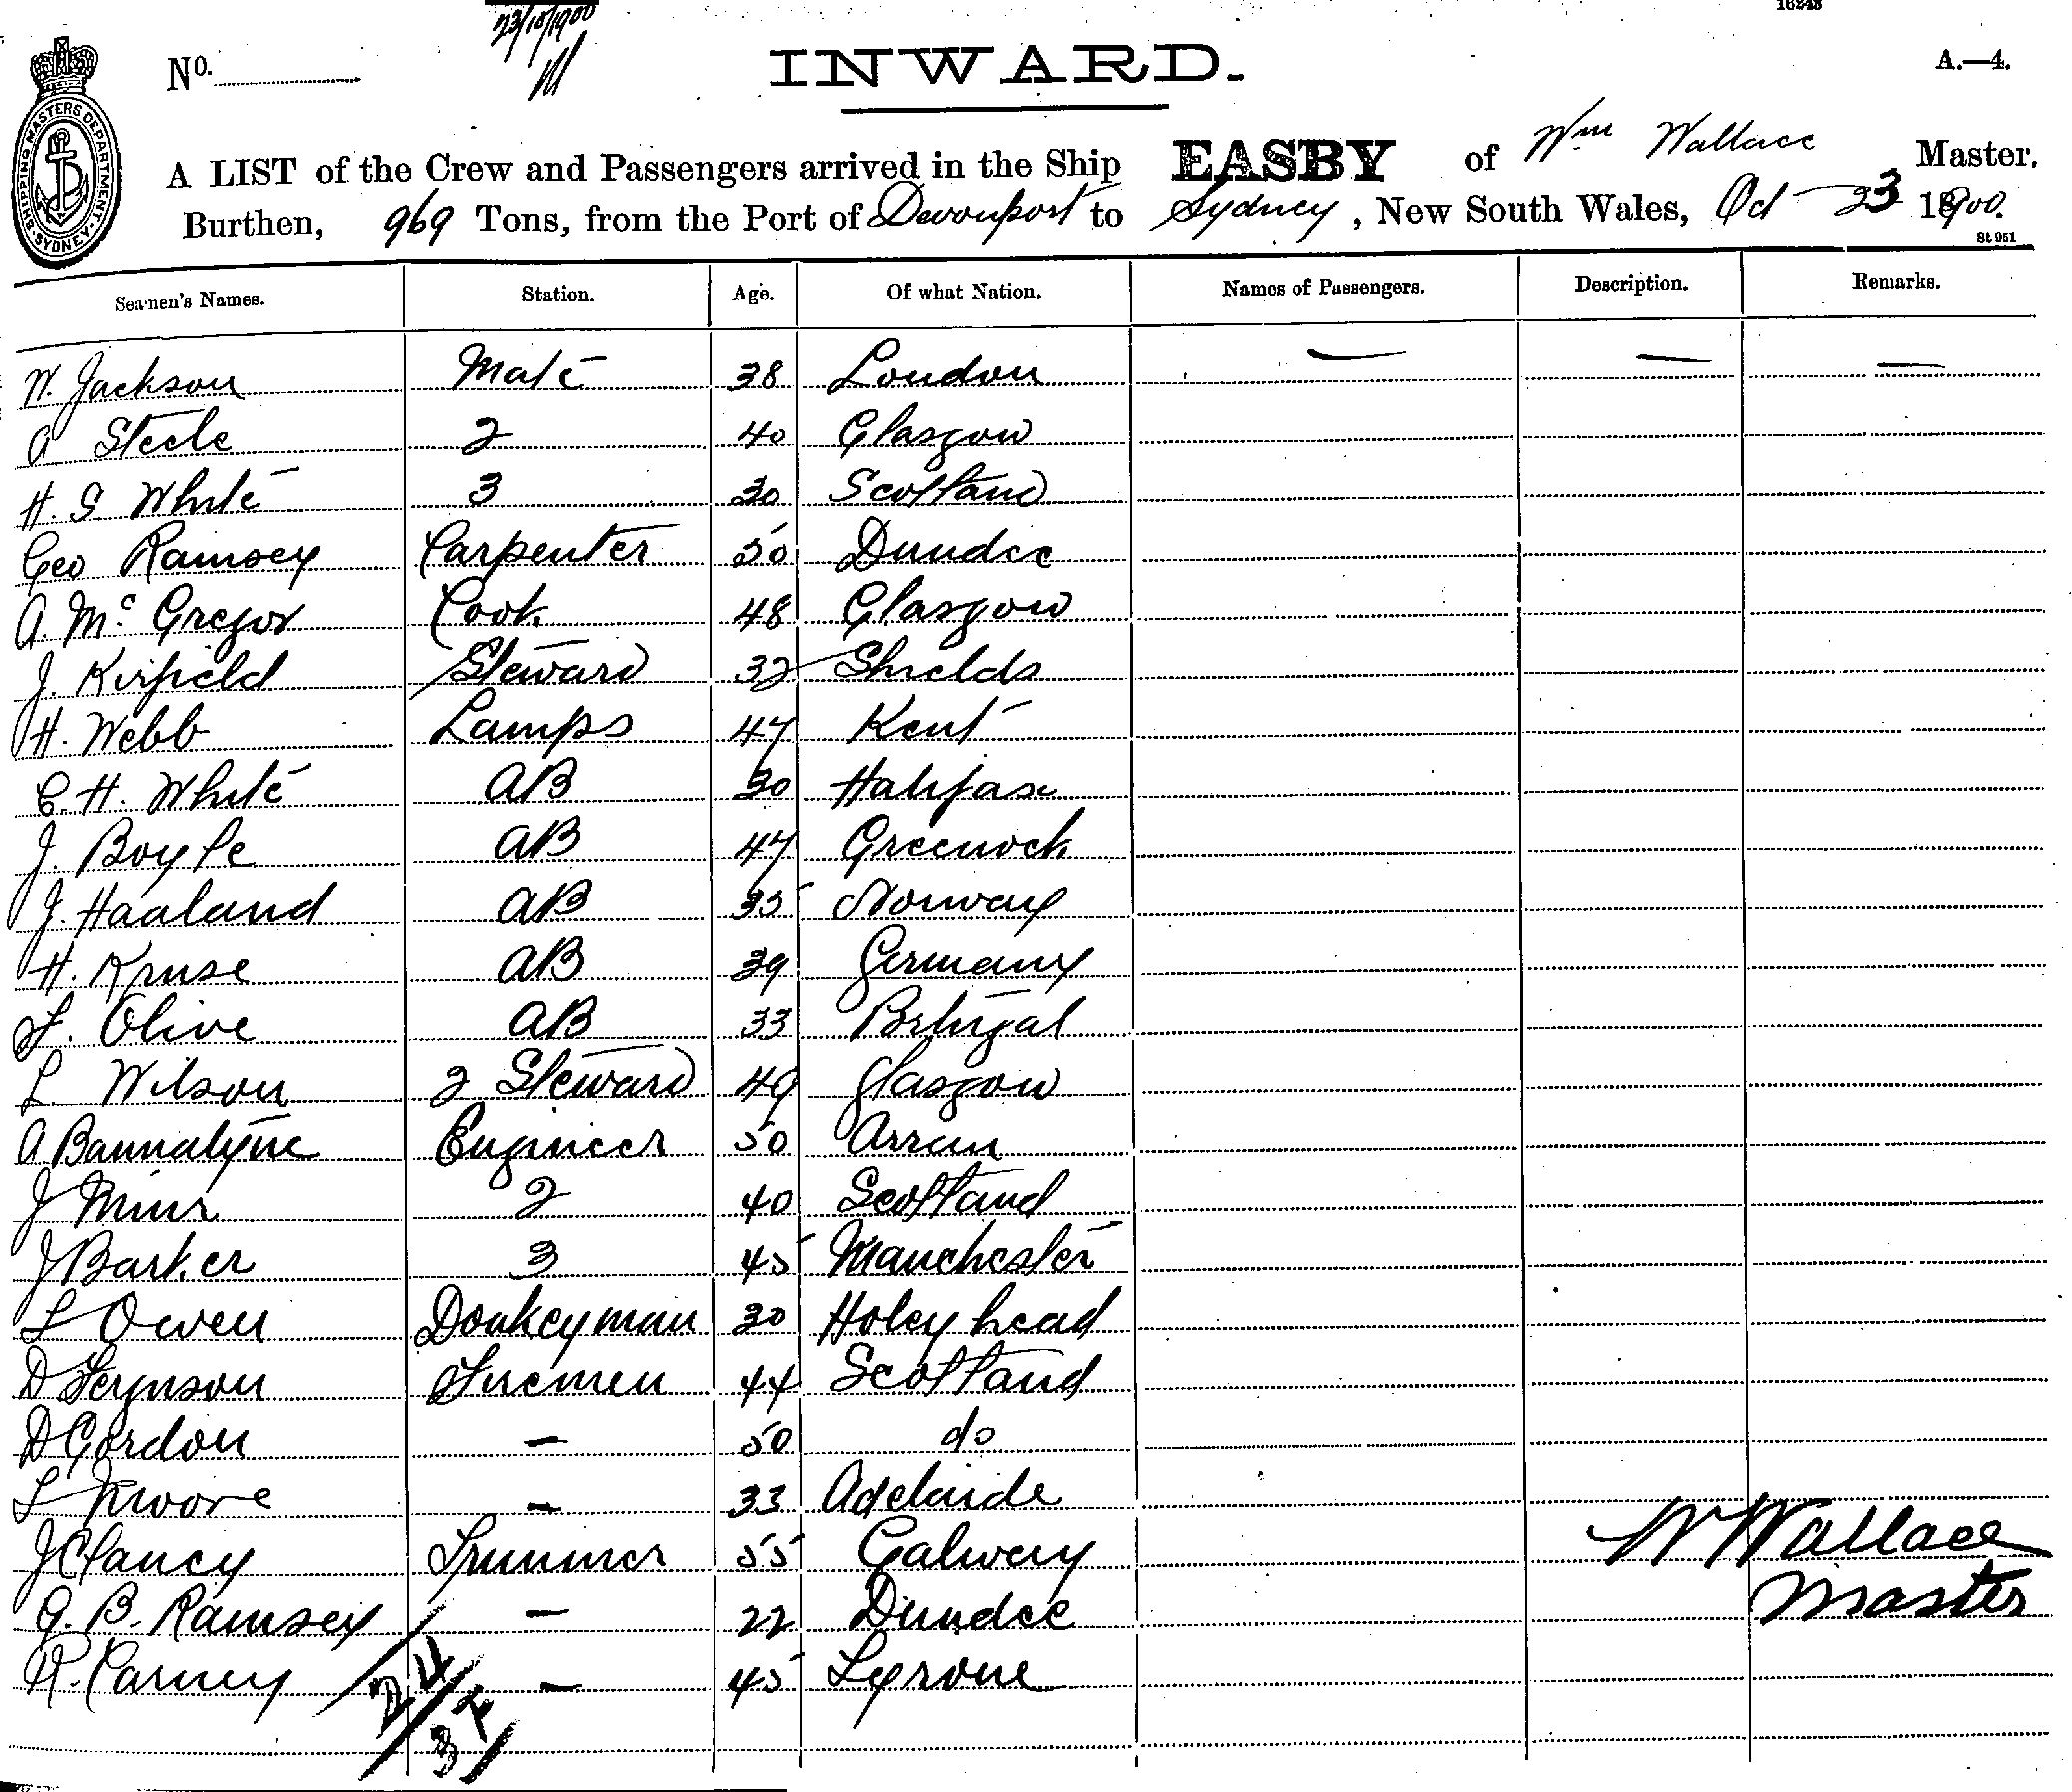 16243
23/10/1900
No.
INWARD.
A.—4.
SHIPPING MASTERS DEPARTMENT SYDNEY
A LIST of the Crew and Passengers arrived in the Ship EASBY of Wm Wallace Master.
Burthen, 969 Tons, from the Port of Devonport to Sydney, New South Wales, Oct 23 1900.
St 951
Seamen's Names. Station. Age. Of what Nation. Names of Passengers. Description. Remarks.
W. Jackson Mate 38 London — — —
A Steele 2 40 Glasgow
H. S White 3 30 Scotland
Geo Ramsey Carpenter 50 Dundee
A. Mc Gregor Cook 48 Glasgow
J. Kirfield Steward 32 Shields
H. Webb Lamps 47 Kent
C. H. White AB 30 Halifax
J. Boyle AB 47 Greenock
J. Haaland AB 35 Norway
H. Kruse AB 39 Germany
F. Olive AB 33 Portugal
L Wilson 2 Steward 49 Glasgow
A Bannatyne Engineer 50 Arran
J Muir 2 40 Scotland
J Barker 3 45 Manchester
L Owen Donkeyman 30 Holey head
D Ferguson Firemen 44 Scotland
D Gordon — 50 do
L Moore — 33 Adelaide
J Clancy Trimmer 55 Galway
G. B. Ramsey — 22 Dundee
R. Carney — 45 Tyrone
W Wallace
Master